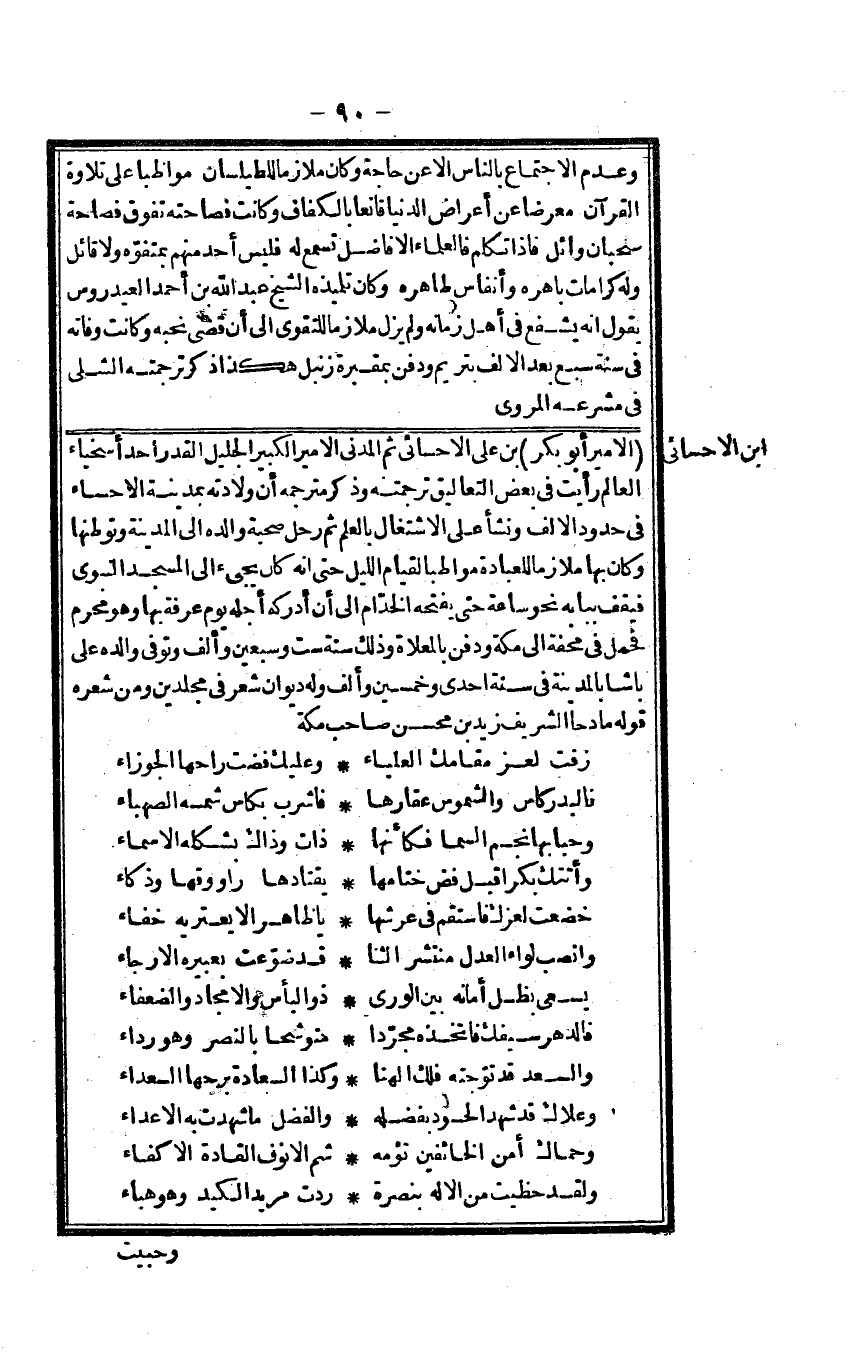 - ٩٠ -
وعدم الاجتماع بالناس الا عن حاجة وكان ملازما للطيلسان مواظبا على تلاوة
القرآن معرضا عن أعراض الدنيا قانعا بالكفاف وكانت فصاحته تفوق فصاحة
سحبان وائل فاذا تكلم فالعلماء الافاضل تسمع له فليس أحد منهم بمتفوّه ولا قائل
وله كرامات باهره وأنفاس طاهره وكان تلميذه الشيخ عبد الله بن أحمد العيدروس
يقول انه يشفع فى أهل زمانه ولم يزل ملازما للتقوى الى أن قضى نحبه وكانت وفاته
فى سنة سبع بعد الالف بتريم ودفن بمقبرة زنبل هكذا ذكر ترجمته الشلى
فى مشرعه المروى
ابن الاحسائى
(الامير أبو بكر) بن على الاحسائى ثم المدنى الامير الكبير الجليل القدر أحد أسخياء
العالم رأيت فى بعض التعاليق ترجمته وذكر مترجمه أن ولادته بمدينة الاحساء
فى حدود الالف ونشأ على الاشتغال بالعلم ثم رحل صحبة والده الى المدينة وتوطنها
وكان بها ملازما للعبادة مواظبا لقيام الليل حتى انه كان يجىء الى المسجد النبوى
فيقف ببابه نحو ساعة حتى يفتحه الخدّام الى أن أدركه أجله يوم عرفة بها وهو محرم
فحمل فى محفة الى مكة ودفن بالمعلاة وذلك سنة ست وسبعين وألف وتوفى والده على
باشا بالمدينة فى سنة احدى وخمسين وألف وله ديوان شعر فى مجلدين ومن شعره
قوله مادحا الشريف زيد بن محسن صاحب مكة
زفت لعز مقامك العلياء * وعليك فضت راحها الجوزاء
فالبدر كاس والشموس عقارها * فاشرب بكاس شمسه الصهباء
وحبابها نجم السما فكأنها * ذات وذاك بشكله الاسماء
وأتتك بكرا قبل فض ختامها * يقتادها راووقها وذكاء
خضعت لعزك فاستقم فى عرشها * يا ظاهرا لا يعتريه خفاء
وانصب لواء العدل منتشر الثنا * قد ضوّعت بعبيره الارجاء
يسعى بظل أمانه بين الورى * ذو البأس والامجاد والضعفاء
فالدهر سيفك فاتخذه مجرّدا * متوشحا بالنصر وهو رداء
والسعد قد توّجته فلك الهنا * وكذا السعادة برجها السعداء
وعلاك قد شهد الحسود بفضله * والفضل ما شهدت به الاعداء
وحماك أمن الخائفين تؤمه * شم الانوف القادة الاكفاء
ولقد حظيت من الاله بنصرة * ردت مريد الكيد وهو هباء
وحبيت